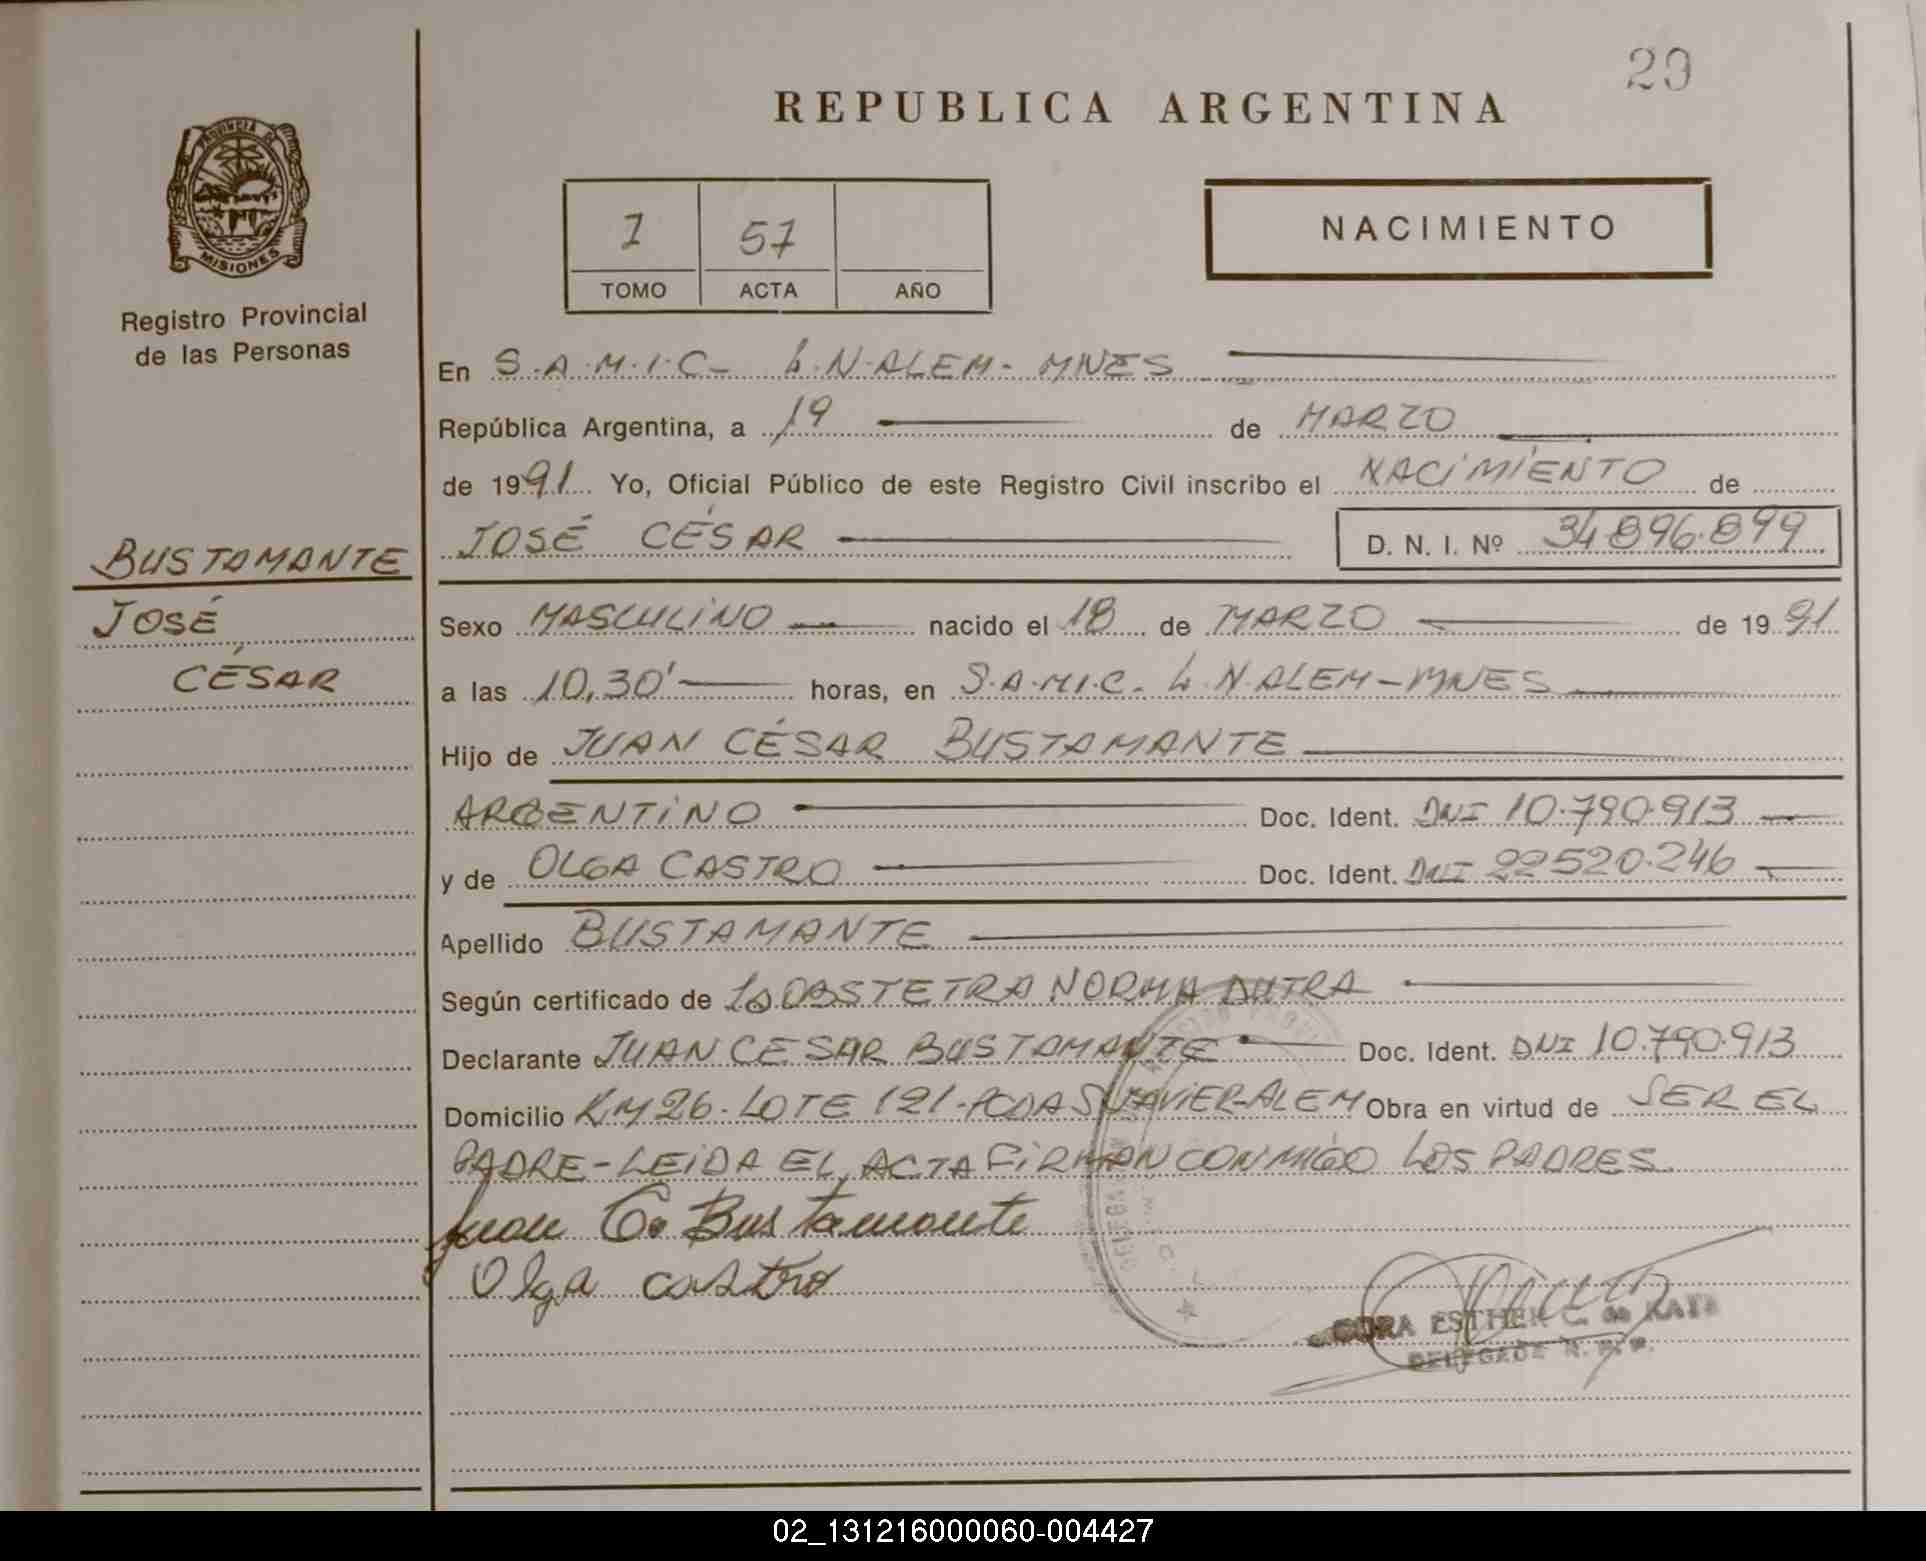 29
REPUBLICA ARGENTINA
PROVINCIA DE
MISIONES
Registro Provincial
de las Personas
1 57
TOMO ACTA AÑO
NACIMIENTO
En S.A.M.I.C- L.N.ALEM- MNES
República Argentina, a 19 de MARZO
de 1991 Yo, Oficial Público de este Registro Civil inscribo el NACIMIENTO de
JOSÉ CÉSAR D. N. I. Nº 34.896.899
BUSTAMANTE
JOSÉ
CÉSAR
Sexo MASCULINO nacido el 18 de MARZO de 1991
a las 10,30' horas, en S.A.M.I.C. L.N.ALEM-MNES
Hijo de JUAN CÉSAR BUSTAMANTE
ARGENTINO Doc. Ident. DNI 10.790.913
y de OLGA CASTRO Doc. Ident. DNI 22520.246
Apellido BUSTAMANTE
Según certificado de LA OBSTETRA NORMA DUTRA
Declarante JUAN CESAR BUSTAMANTE Doc. Ident. DNI 10.790.913
Domicilio KM 26- LOTE 121- PCDA S/JAVIER-ALEM Obra en virtud de SER EL
PADRE-LEIDA EL ACTA FIRMAN CONMIGO LOS PADRES
Juan C. Bustamante
Olga castro
ESTHER C. de
DELEGADA R. P. P.
02_131216000060-004427